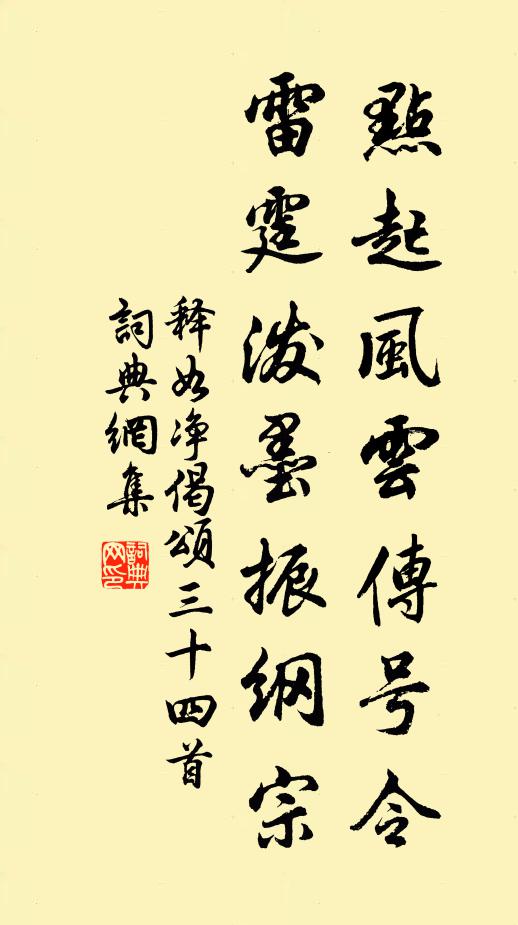 點起風雲傳号令
雷霆潑墨振綱宗
释如净偈頌三十四首
詞典網集
詞典网印